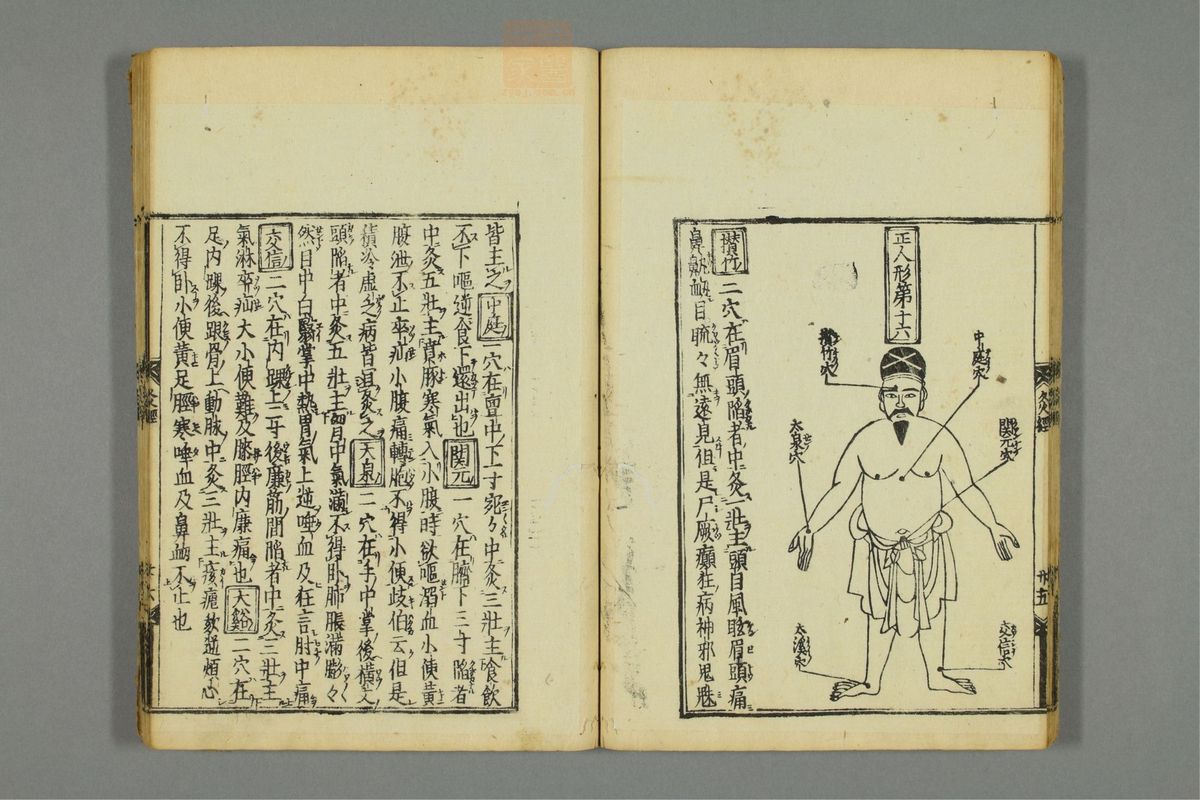 正人形第十六
中庭穴
関元穴
交信穴
攅竹穴
太泉穴
太溪穴
攅竹 二穴在眉頭陷者中灸一壯主頭目風眩眉頭痛
鼻鼽衂目䀮々無遠見但是尸厥癲狂病神邪鬼魅
皆主之 中庭 一穴在亶中下一寸宛々中灸三壯主食飲
不下嘔逆食下還出也 関元 一穴在臍下三寸陷者
中灸五壯主賁豚寒氣入小腹時欲嘔溺血小便黄
腹泄不止卒疝小腹痛轉胞不得小便歧伯云但是
積冷虚乏病皆宜灸之 大泉 二穴在手中掌後横文
頭陷者中灸五壯主胷中氣滿不得卧肺脹滿膨々
然目中白翳掌中熱胃氣上逆唾血及狂言肘中痛
交信 二穴在内踝上二寸後廉筋間陷者中灸三壯主
氣淋卒疝大小便難及膝脛内廉痛也 大谿 二穴在
足内踝後跟骨上動脉中灸三壯主痎瘧欬逆煩心
不得卧小便黄足脛寒唾血及鼻衂不止也
灸經
廿五